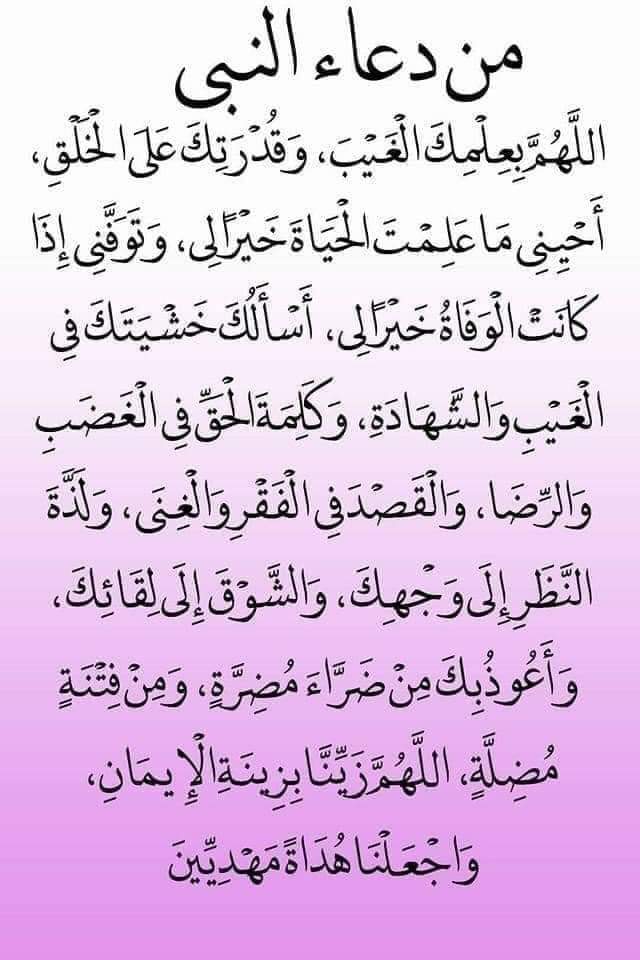 من دعاء النبي
اللَّهُمَّ بِعِلْمِكَ الْغَيْبَ، وَقُدْرَتِكَ عَلَى الْخَلْقِ،
أَحْيِنِي مَا عَلِمْتَ الْحَيَاةَ خَيْرًا لِي، وَتَوَفَّنِي إِذَا
كَانَتْ الْوَفَاةُ خَيْرًا لِي، أَسْأَلُكَ خَشْيَتَكَ فِي
الْغَيْبِ وَالشَّهَادَةِ، وَكَلِمَةَ الْحَقِّ فِي الْغَضَبِ
وَالرِّضَا، وَالْقَصْدَ فِي الْفَقْرِ وَالْغِنَى، وَلَذَّةَ
النَّظَرِ إِلَى وَجْهِكَ، وَالشَّوْقَ إِلَى لِقَائِكَ،
وَأَعُوذُ بِكَ مِنْ ضَرَّاءَ مُضِرَّةٍ، وَمِنْ فِتْنَةٍ
مُضِلَّةٍ، اللَّهُمَّ زَيِّنَّا بِزِينَةِ الْإِيمَانِ،
وَاجْعَلْنَا هُدَاةً مَهْدِيِّينَ